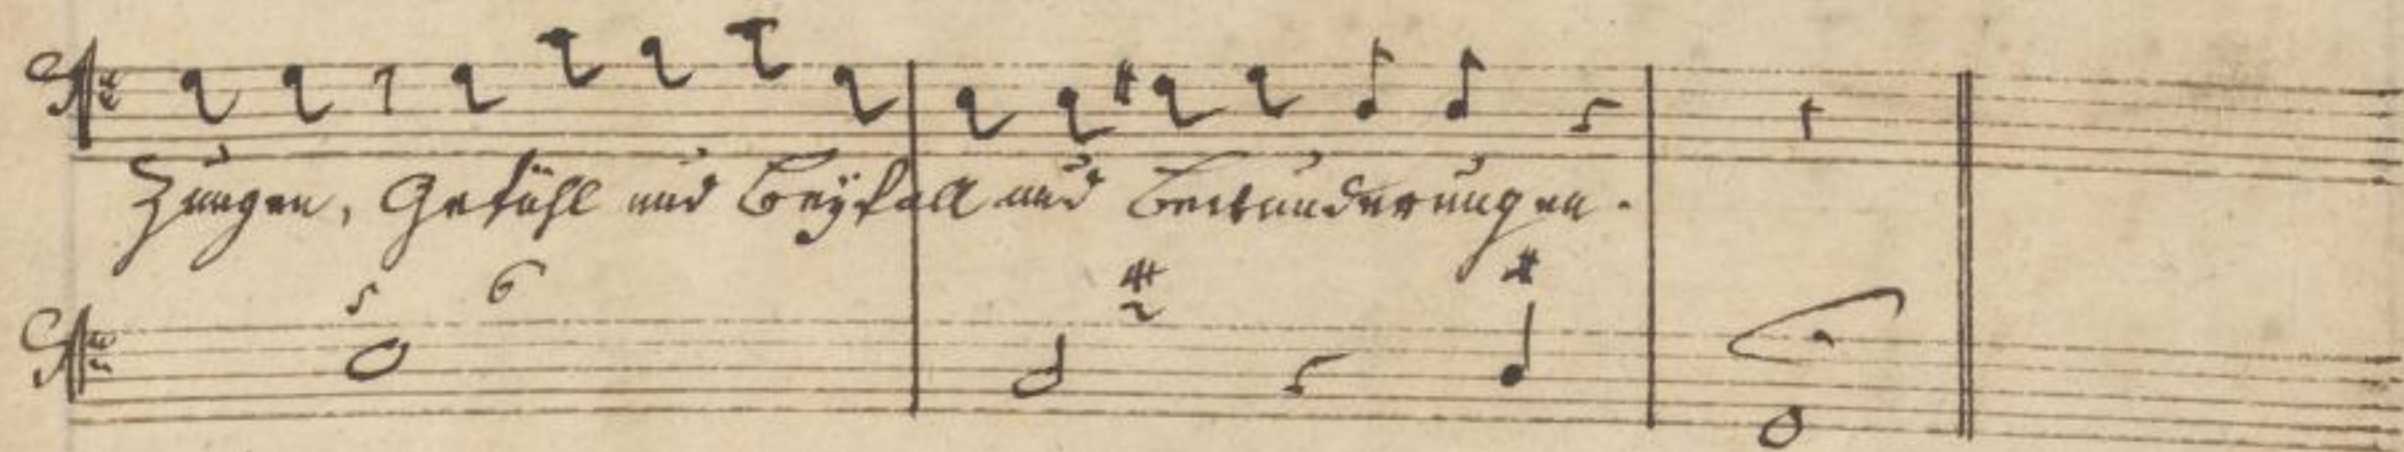 Zungen, Gefühl und Beyfall und Bewunderungen.
5 6